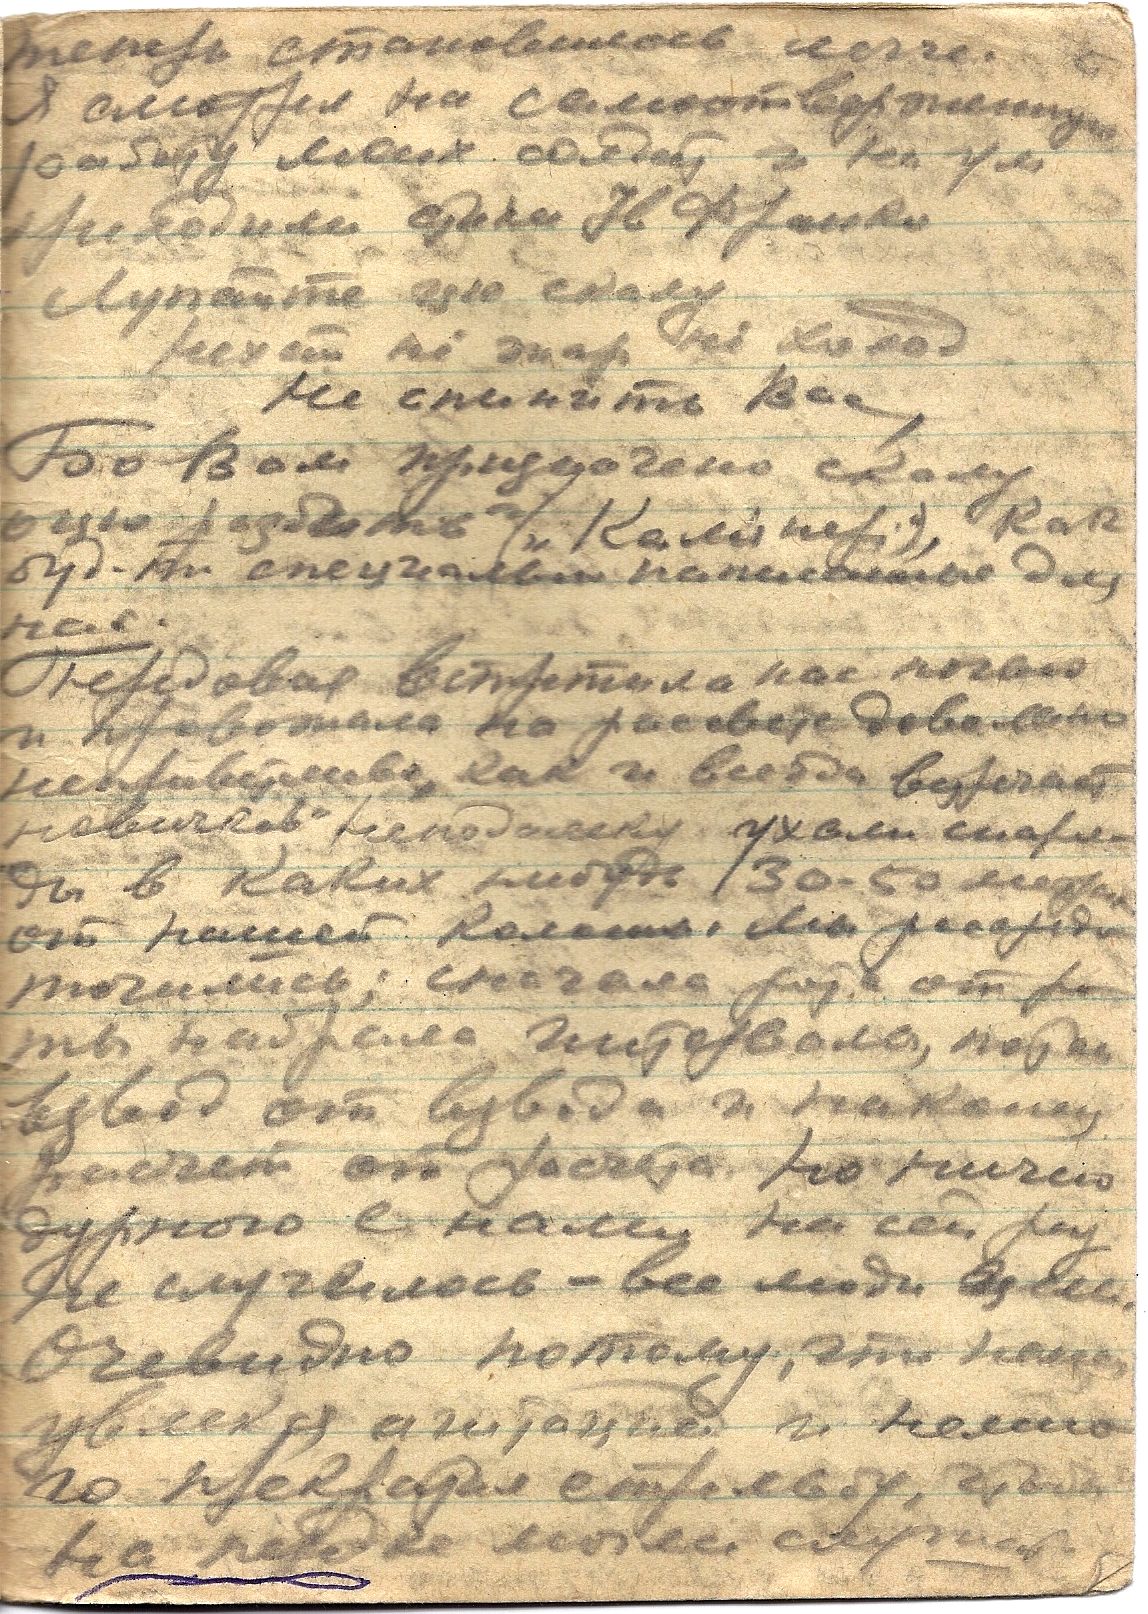 теперь становилось легче. 6
Я смотрел на самоотверженную
работу моих солдат и на ум
приходили стихи Ів Франко
Лупайте цю скалу
Нехай ні жар ні холод
Не спинить Вас,
Бо Вам призначено скалу
оцю розбить" („Каменярі"), как
буд-то специально написанные для
нас.
Передовая встретила нас ночью
и провожала на рассвете довольно
неприветливо, как и всегда встречает
новичков" Неподалеку ухали снаря-
ды в каких нибудь 30-50 метрах
от нашей колонны. Мы рассредо
точились; сначала рота от ро
ты набрала интервала, потом
взвод от взвода и наконец
расчет от расчета. Но ничего
дурного с нами на сей раз
не случилось – все люди целы.
Очевидно потому, что немец
увлекся агитацией и немно
го прекратил стрельбу, чтобы
на передке могли слушать